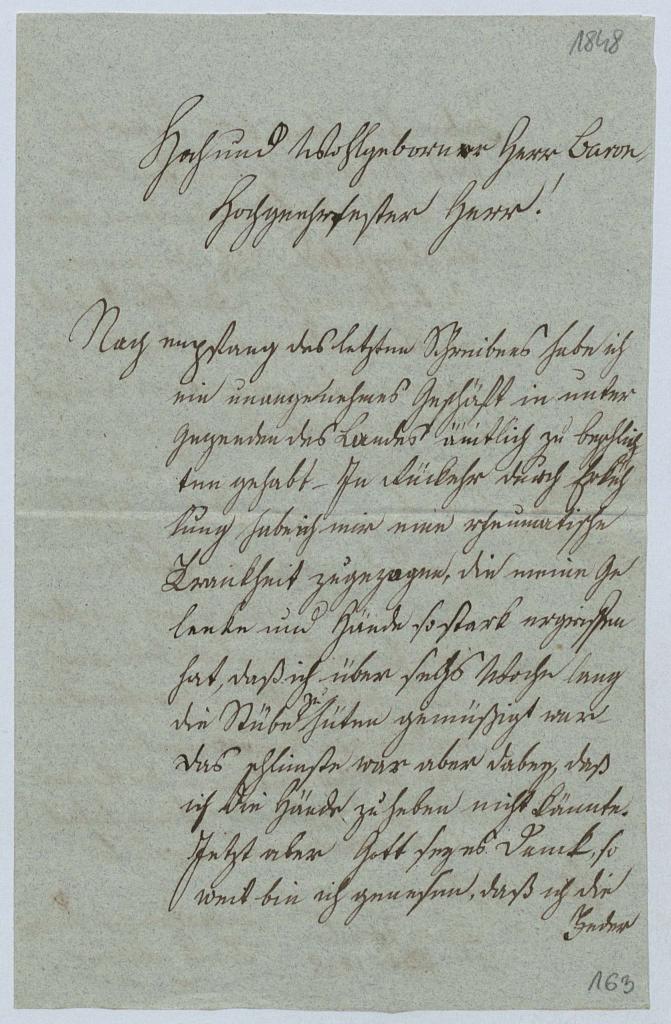 1848
Hoch und Wohlgeborner Herr Baron,
Hochgeehrtester Herr!
Nach empfang des letzten Schreibens habe ich
ein unangenehmes Geschäft in unter
Gegenden des Landes ämtlich zu
ten gehabt – In Rückkehr durch Erküh
lung habe ich mir eine rheumatische
Krankheit zugezogen, die meine Ge
lenke und Hände so stark ergriffen
hat, daß ich über sechs Woche lang
die Stübe zu hüten gemüßigt war –
das schlimste war aber dabey, daß
ich die Hände zu heben nicht kännte.
Jetzt aber Gott sey es Dank, so
weit bin ich genesen, daß ich die
Feder
163